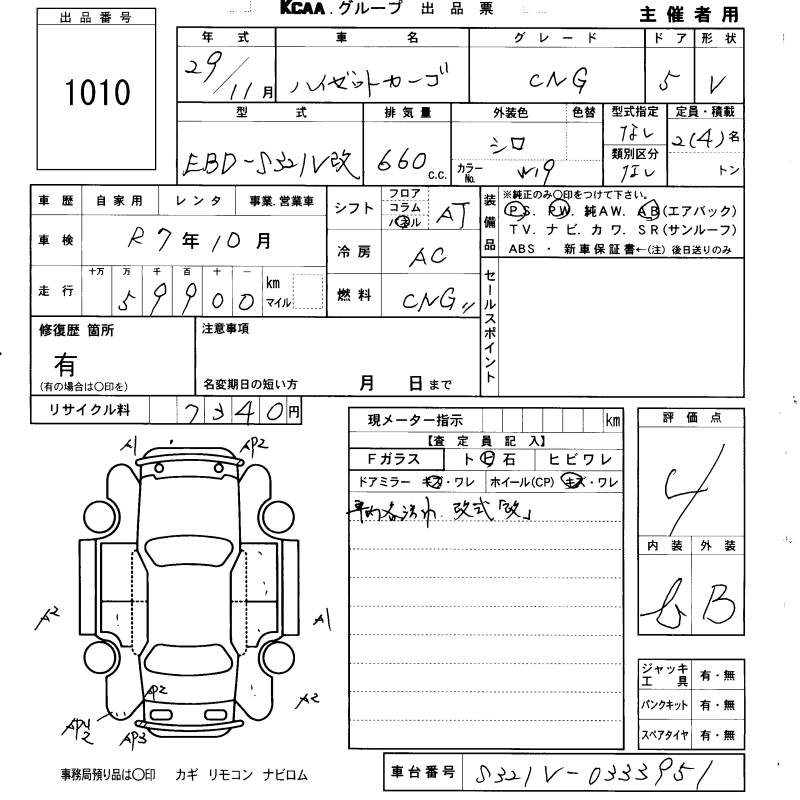 KCAA.グループ 出品票 主催者用
出品番号
1010
年式 車名 グレード ドア 形状
29/11月 ハイゼットカーゴ CNG 5 V
型式 排気量 外装色 色替 型式指定 定員・積載
EBD-S321V改 660 c.c. シロ なし 2(4)名
カラーNo. W19 類別区分 なし トン
車歴 自家用 レンタ 事業.営業車
車検 R7年10月
走行 十万 万 千 百 十 一 km マイル
59900
シフト フロア コラム パネル AT
冷房 AC
燃料 CNG
装備品 ※純正のみ○印をつけて下さい。
PS. PW. 純AW. AB(エアバック)
TV. ナビ. カワ. SR(サンルーフ)
ABS ・ 新車保証書←(注) 後日送りのみ
セールスポイント
修復歴 箇所
有
(有の場合は○印を)
注意事項
名変期日の短い方 月 日まで
リサイクル料 7340円
現メーター指示 km
【査定員記入】
Fガラス ト ビ 石 ヒビワレ
ドアミラー キズ・ワレ ホイール(CP) キズ・ワレ
改式「改」
評価点
4
内装 外装
b B
A1 AP2
A2 A1
P2 A2
AP3
ジャッキ工具 有・無
パンクキット 有・無
スペアタイヤ 有・無
事務局預り品は○印 カギ リモコン ナビロム
車台番号 S321V-0333951